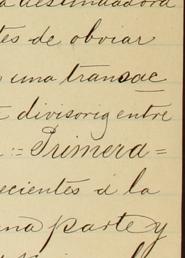 destinadora
tes de obviar
una transac
divisorig entre
:= Primera =
ecientes á la
una parte y